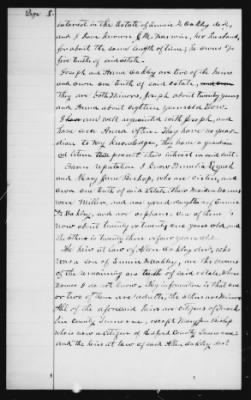 Page 5.
interest in the Estate of Annie E Oakley dec'd,
and I have known J.M. Harwin, her husband,
for about the same length of time; he owns
five tenth of said estate.
Joseph and Anna Oakley are two of the heirs
and own one tenth of said estate,
they are both minors, Joseph about twenty years
and Anna about eighteen years old now.
I am well acquainted with Joseph, and
have seen Anna often. They have no guar-
dian to my knowledge, they have a guardian
ad litem that present their interest in said suit.
From reputation I know
and Mary Jane Bishop, who are sisters, and
own one tenth of said estate. Their maiden names
were Miller, and are grand daughters of Annie
E. Oakley, and are orphans. One of them is
now about twenty or twenty one years old and
the other is twenty three or four years old.
The heirs at law of Allen Oakley dec'd, who
was a son of Annie E Oakley, are the owners
of the remaining one tenth of said estate, whose
names I do not know. My information is that one
or two of them are adults, the others are minors.
All of the aforesaid heirs are citizens of Frank
lin County Tennessee, except Mary Jane Bishop
who is now a citizen of Bedford County Tennessee
and the heirs at law of said Allen Oakley dec'd